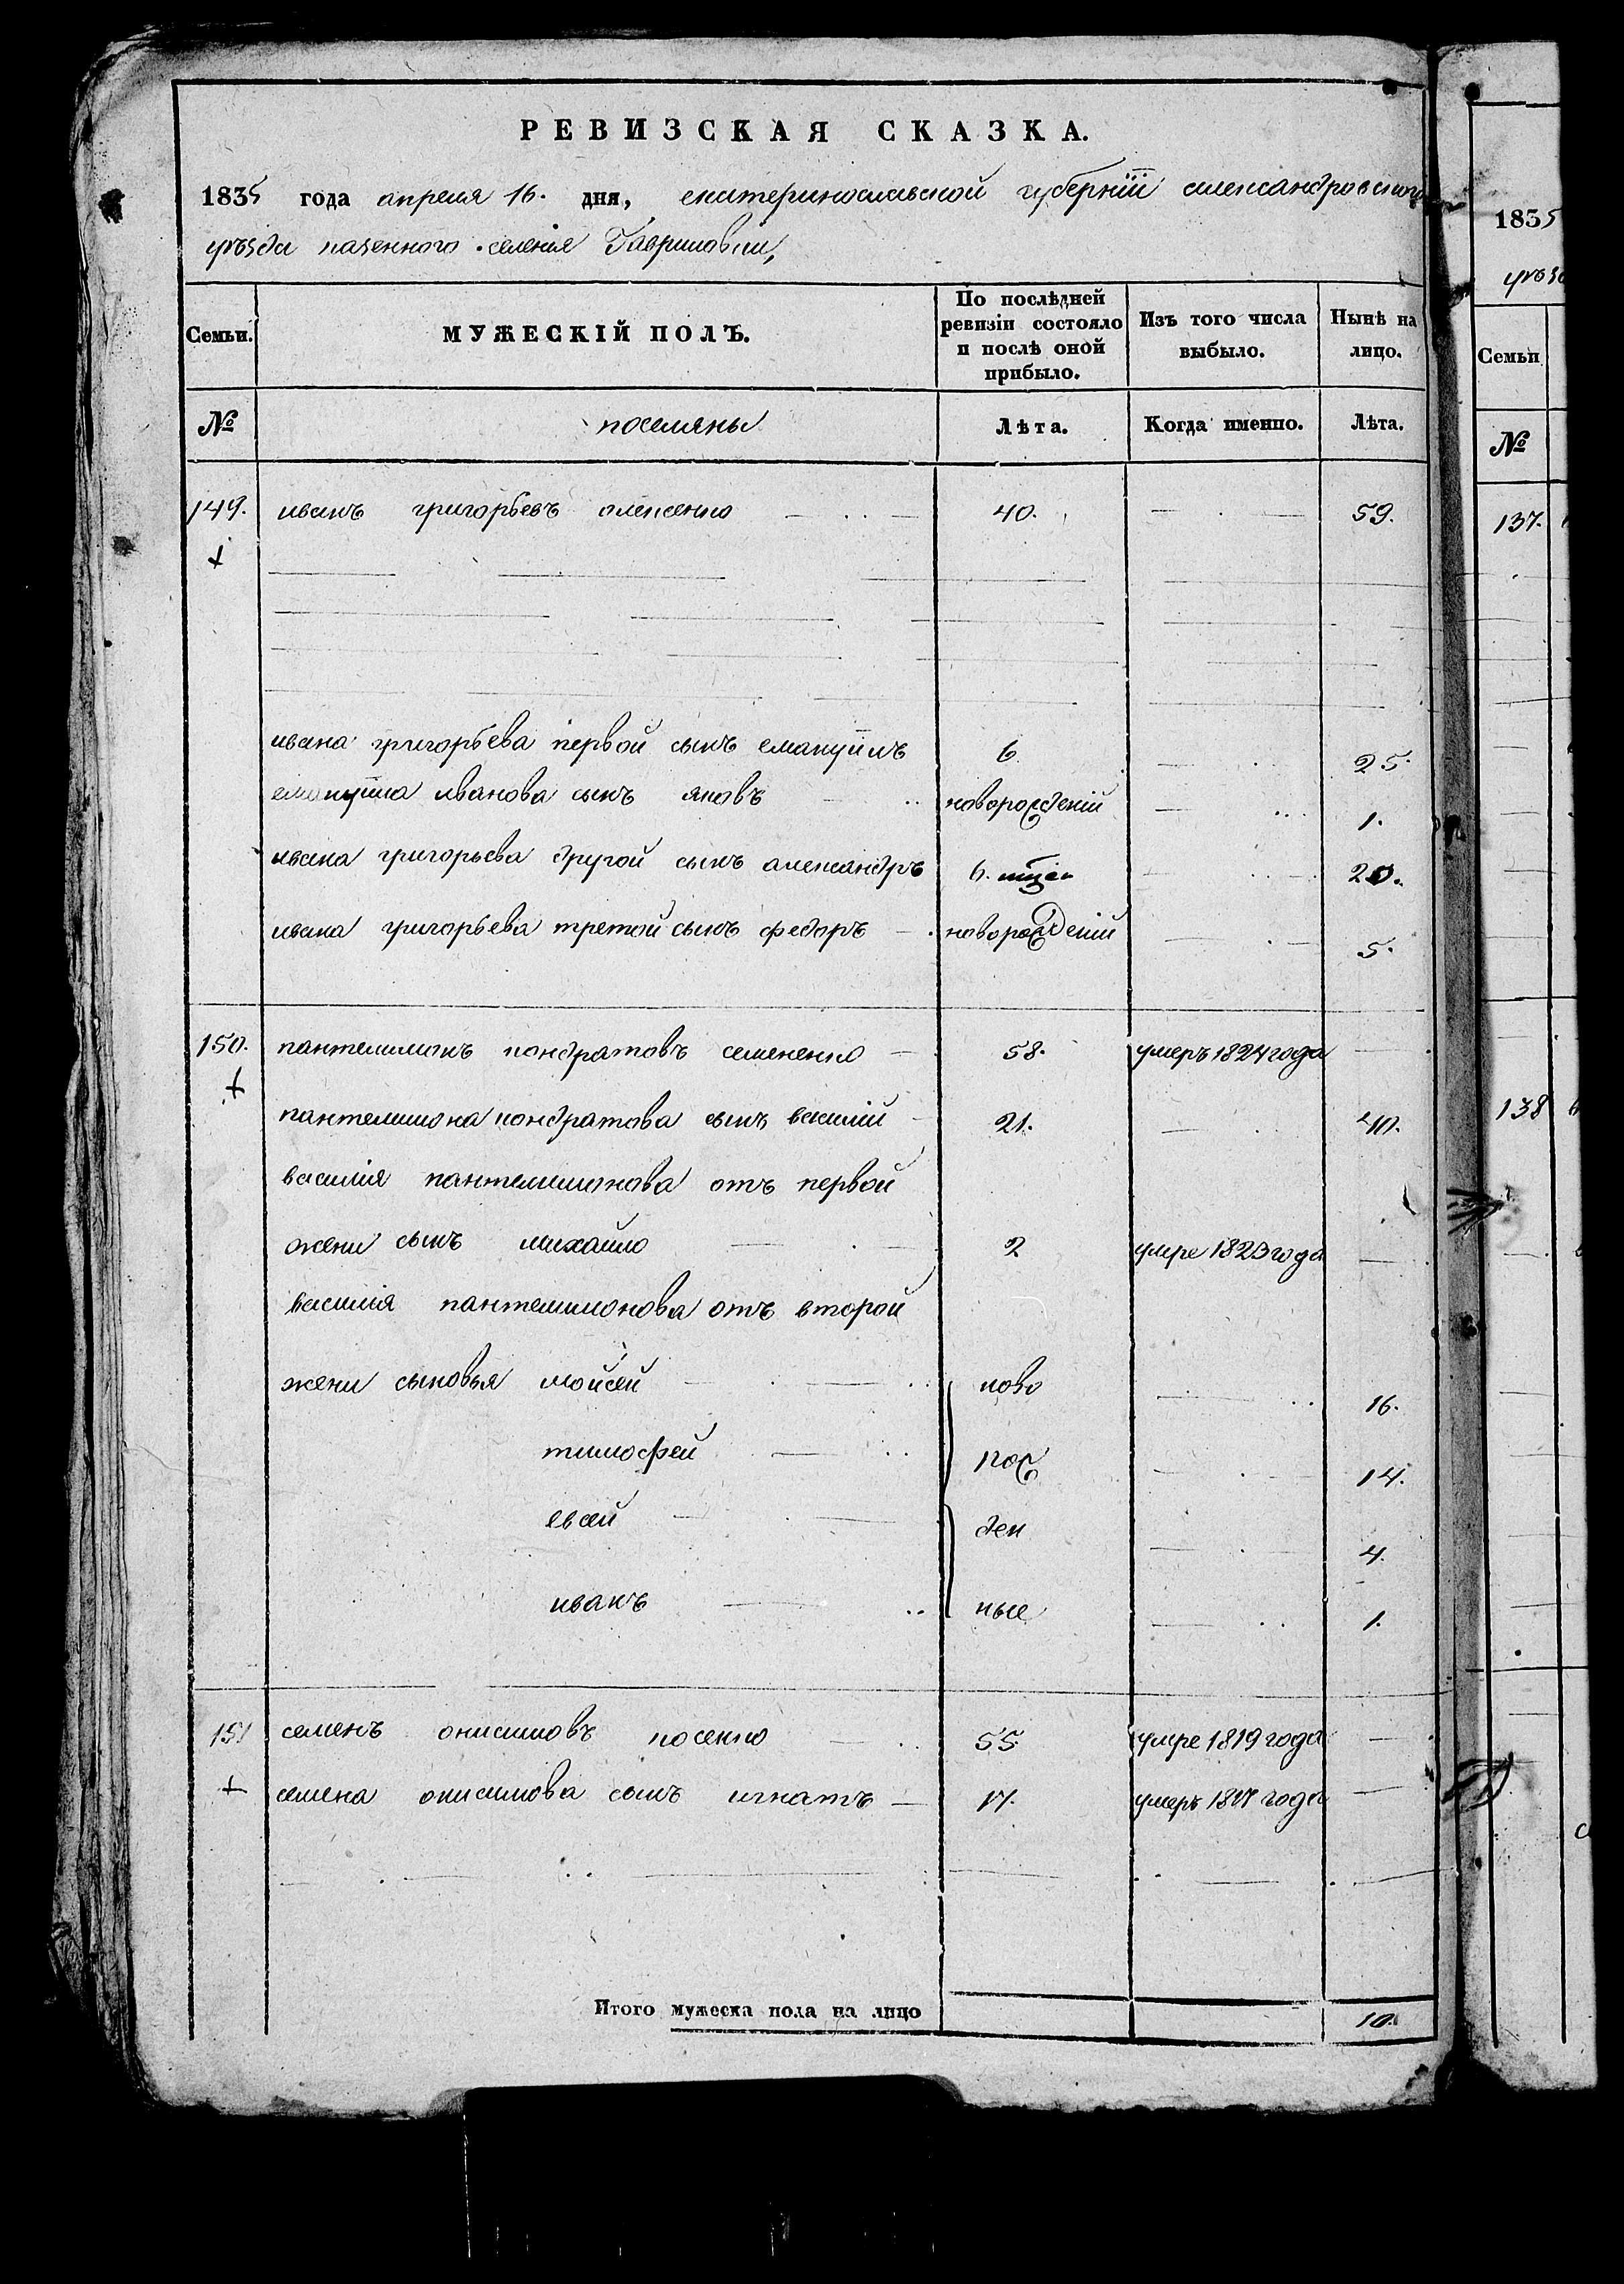 РЕВИЗСКАЯ СКАЗКА.
1835 года апреля 16. дня, екатеринославской губерніи александровского
уѣзда казенного селенія Гавриловки,
Семьи. МУЖЕСКІЙ ПОЛЪ. По послѣдней ревизіи состояло и послѣ оной прибыло. Изъ того числа выбыло. Нынѣ на лицо.
№ поселяны Лѣта. Когда именно. Лѣта.
149. иванъ григорьевъ алексенко 40. 59.
+
ивана григорьева первой сынъ емануилъ 6 25.
емануила иванова сынъ яковъ новорожденій 1.
ивана григорьева другой сынъ александръ 6. мцъ 20.
ивана григорьева третой сынъ федоръ новорожденій 5.
150. пантелимонъ кондратовъ семененко 58. умеръ 1824 года
+
пантелимона кондратова сынъ василій 21. 40.
василія пантелимонова отъ первой
жени сынъ михайло 2 умре 1823 года
василія пантелимонова отъ второй
жени сыновья мойсей ново 16.
тимофей рож 14.
евсей ден 4.
иванъ ные 1.
151 семенъ онисимовъ косенко 55 умре 1819 года
+ семена онисимова сынъ игнатъ 17. умеръ 1817 года
Итого мужеска пола на лицо 10.
1835
уѣзд
Семьи
№
137.
138